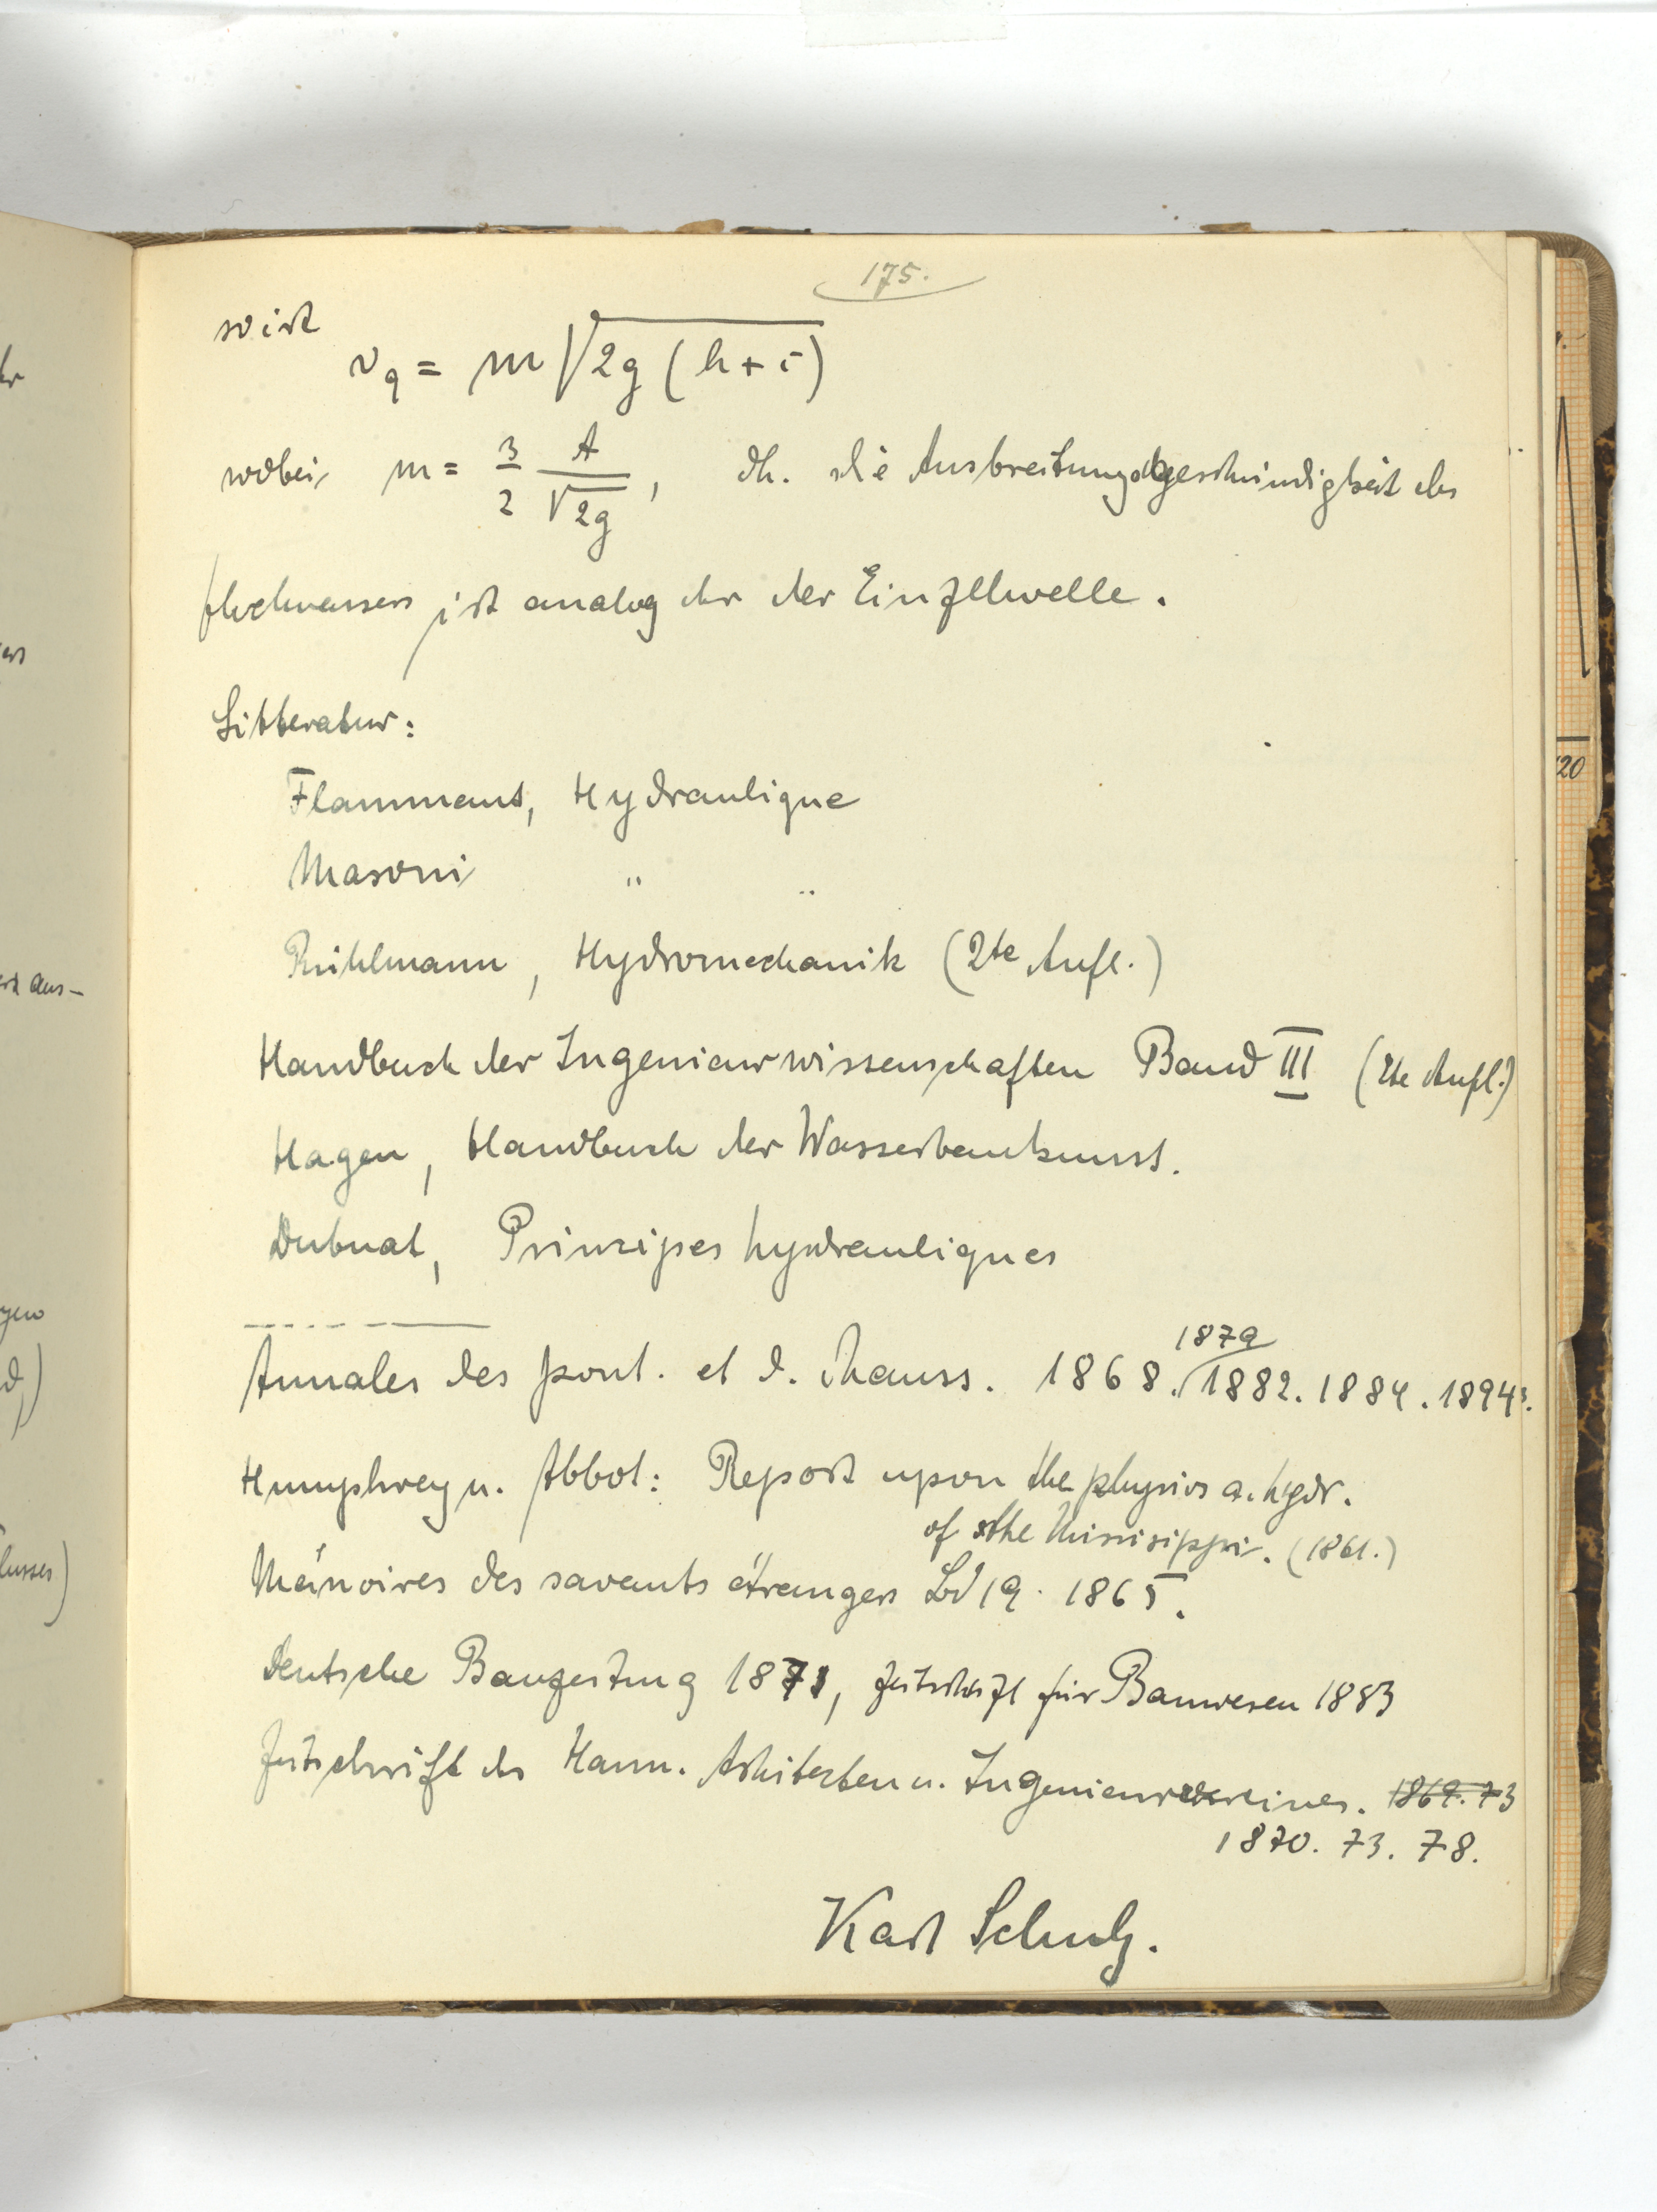 175.
so ist
v_q = m √2g (h+i)
wobei m = 3/2 A/√2g, dh. die Ausbreitungsgeschwindigkeit des
Hochwassers ist analog der der Einzellwelle.
Litteratur:
Flammant, Hydraulique
Masoni " "
Rühlmann, Hydromechanik (2te Aufl.)
Handbuch der Ingenieurwissenschaften Band III (2te Aufl.)
Hagen, Handbuch der Wasserbaukunst.
Dubuat, Prinzipes hydrauliques
1879
Annales des pont. et d. chauss. 1868. 1882. 1884. 1894³.
Humphrey u. Abbot: Report upon the physics a. hydr.
of the Missisippi. (1861.)
Mémoires des savants étrangers Bd 19. 1865.
Deutsche Bauzeitung 1871, Zeitschrift für Bauwesen 1883
Zeitschrift des Hann. Arhitekten u. Ingenieurvereines. 1869. 73
1870. 73. 78.
Karl Schulz.
er aus-
20